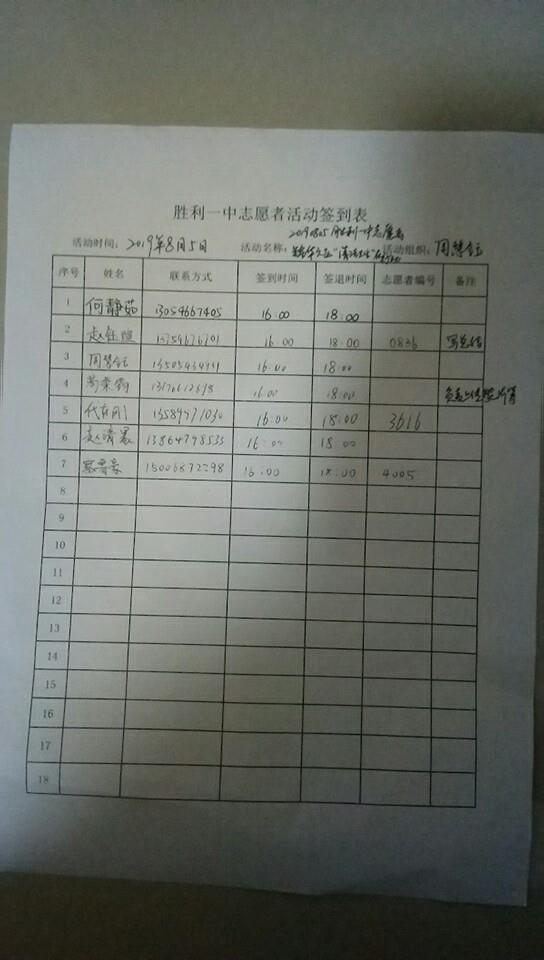 胜利一中志愿者活动签到表
20190805胜利一中志愿者
活动时间：2019年8月5日 活动名称： 活动组织：周慧钰
序号 姓名 联系方式 签到时间 签退时间 志愿者编号 备注
1 何静茹 13054667405 16:00 18:00
2 16:00 18:00 0836 写总结
3 周慧钰 16:00 18:00
4 16:00 18:00
5 16:00 18:00 3616
6 赵晴晨 13864798533 16:00 18:00
7 15006872298 16:00 18:00 4005
8
9
10
11
12
13
14
15
16
17
18